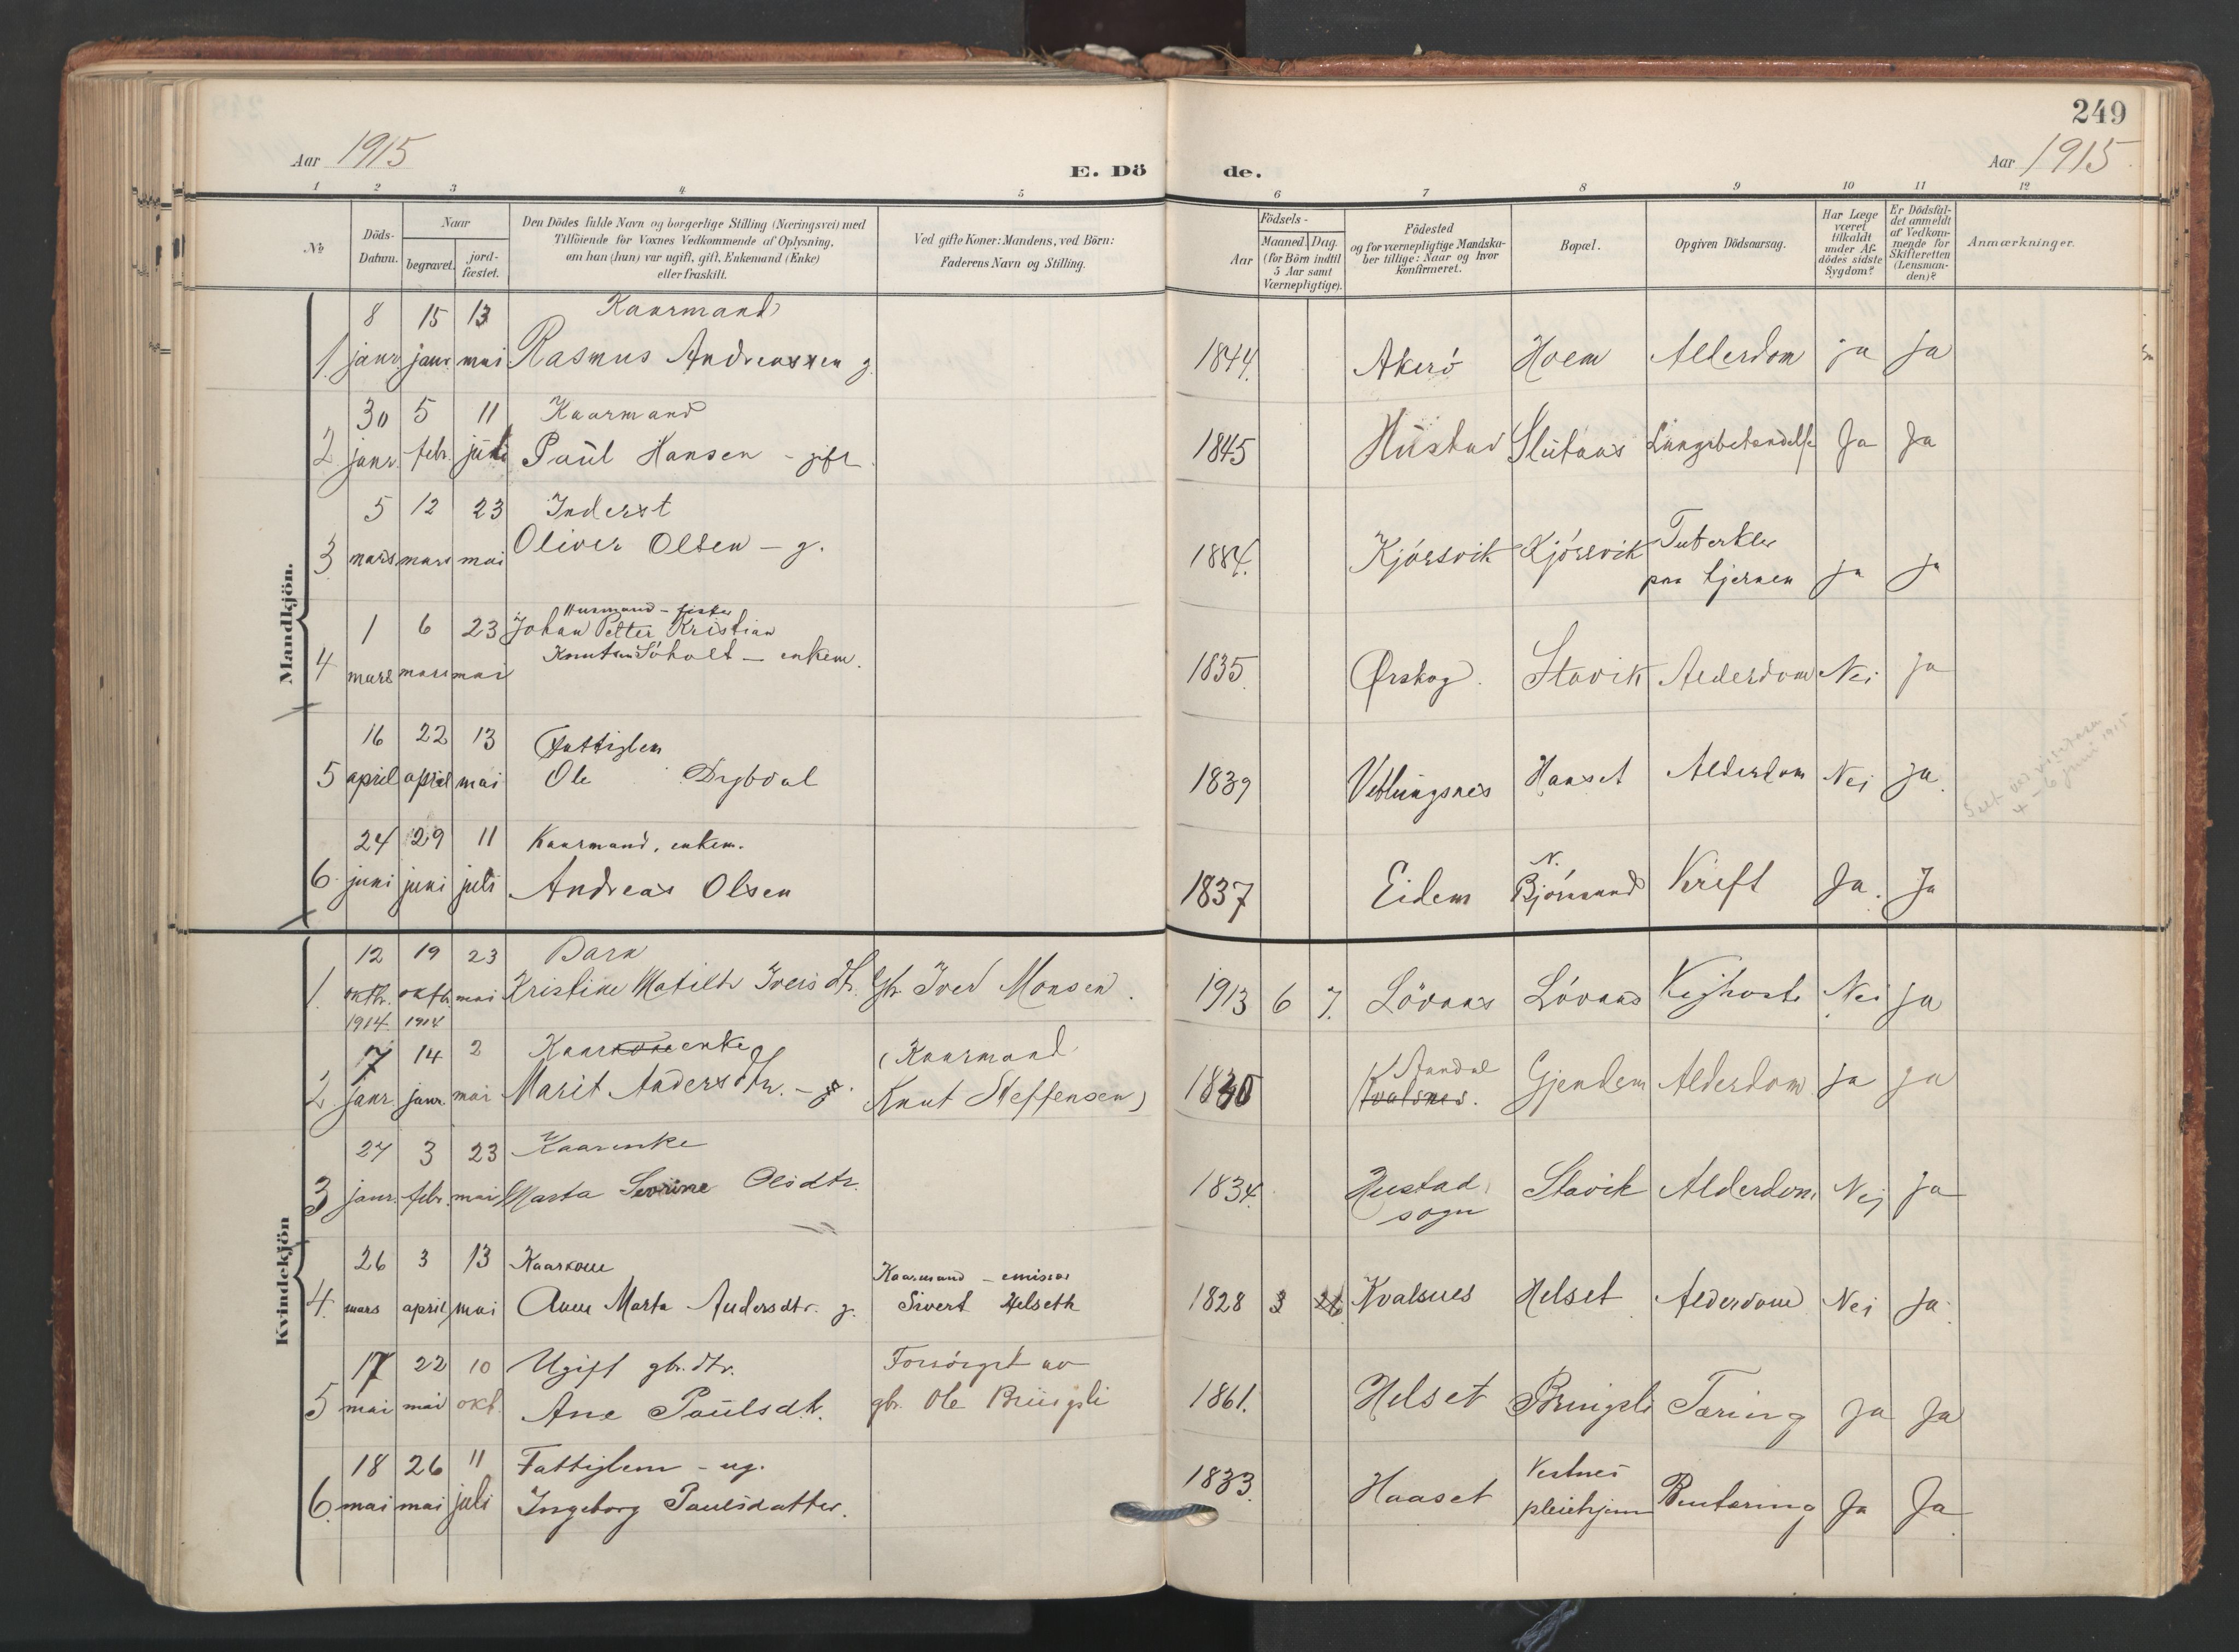 249
Aar 1915
E. Dö
de.
Aar 1915
1 2 3 4 5 6 7 8 9 10 11 12
No
Döds-Datum.
Naar
begravet.
jord-fæstet.
Den Dödes fulde Navn og borgerlige Stilling (Næringsvei) med
Tilföiende for Voxnes Vedkommende af Oplysning,
om han (hun) var ugift, gift, Enkemand (Enke)
eller fraskilt.
Ved gifte Koner: Mandens, ved Börn:
Faderens Navn og Stilling.
Födsels-
Aar
Maaned. Dag.
(for Börn indtil
5 Aar samt
Værnepligtige).
Födested
og for værnepligtige Mandska-
ber tillige: Naar og hvor
konfirmeret.
Bopæl.
Opgiven Dödsaarsag.
Har Læge
været
tilkaldt
under Af-
dödes sidste
Sygdom?
Er Dödsfal-
det anmeldt
af Vedkom-
mende for
Skifteretten
(Lensman-
den)?
Anmærkninger.
Mandkjön.
8 15 13 Kaarmand
1. janr. janr. mai Rasmus Andreassen g. 1844. Akerö Hoem Alderdom ja ja
30 5 11 Kaarmand
2 janr. febr. juli Paul Hansen - gift 1845 Hustad Slutaas Lungebetændelse Ja Ja
5 12 23 Inderst
3 mars mars mai Oliver Olsen - g. 1884. Kjörsvik Kjörsvik Tuberkler
paa hjernen ja ja
1 6 23 Husmand - fisker
Johan Petter Kristian
4 mars mars mai Knutsen Söholt - enkem. 1835. Ørskog. Stavik Alderdom Nei ja
16 22 13 Fattiglem
5 april april mai Ole Drybdal 1839 Veblungsnes Hanset Alderdom Nei ja.
4-6 juni 1915
24 29 11 Kaarmand, enkem.
6 juni juni juli Andreas Olsen 1837 Eidem N.
Björnsund Kreft Ja. Ja
Kvindekjön
12 19 23 Barn
1. oktbr. oktbr. mai Kristine Matilde Iversdtr. Gbr. Iver Monsen. 1913 6 7. Lövaas Lövaas Kighoste Nei ja
1914. 1914
7 14 2 Kaarkone enke (Kaarmand
2. janr. janr. mai Marit Andersdtr. - g. Knut Steffensen) 1830 Aandal
Kvalsnes. Gjendem Alderdom ja ja
27 3 23 Kaarenke
3 janr. febr. mai Marta Severine Olsdtr. 1834. Hustad
sogn Stavik Alderdom Nei ja
26 3 13 Kaarkone Kaarmand - emissær
4. mars april mai Anne Marta Andersdtr. g. Sivert Helseth 1828 3 26. Kvalsnes Helset Alderdom Nei ja.
17 22 10 Ugift gbr. dtr. Forsörget av
5 mai mai okt. Ane Paulsdtr. gbr. Ole Bringsli 1861. Helset Bringsli Tæring ja Ja
18 26 11 Fattiglem - ug.
6. mai mai juli Ingeborg Paulsdatter. 1833. Haaset Vestnes
pleiehjem Bentæring Ja Ja